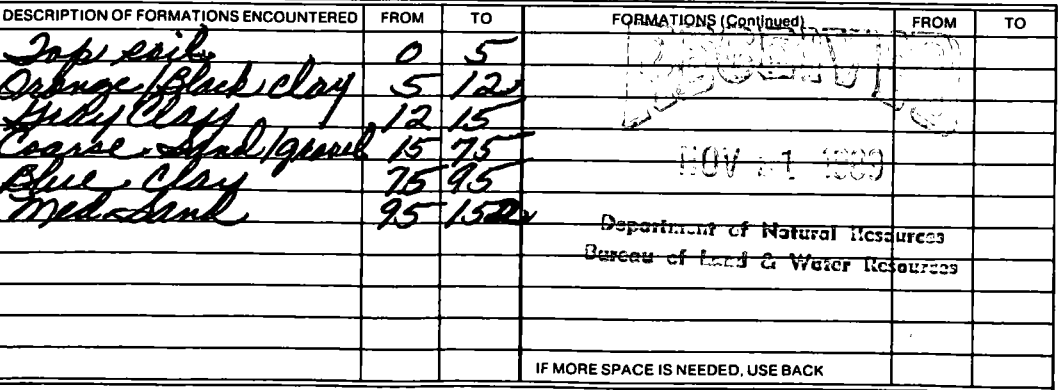 DESCRIPTION OF FORMATIONS ENCOUNTERED FROM TO FORMATIONS (Continued) FROM TO
Top soil 0 5
Orange/Black clay 5 12
Gray Clay 12 15
Coarse Sand/gravel 15 75
Blue Clay 75 95
Med Sand 95 152
RECEIVED
NOV 1989
Department of Natural Resources
Bureau of Land & Water Resources
IF MORE SPACE IS NEEDED, USE BACK